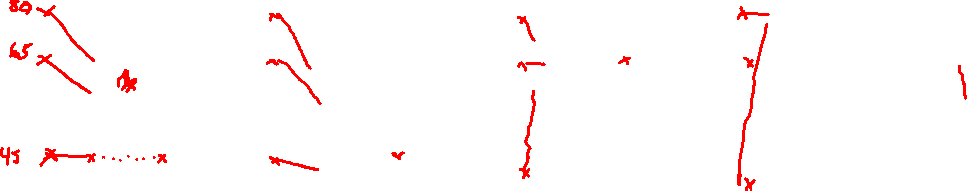 80
65
45